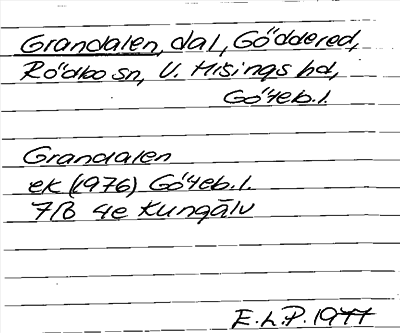 Grandalen, dal, Göddered,
Rödbo sn, V. Hisings hd,
Göteb. l.
Grandalen
ek (1976) Göteb. l.
7B 4e Kungälv
E.L.P. 1977